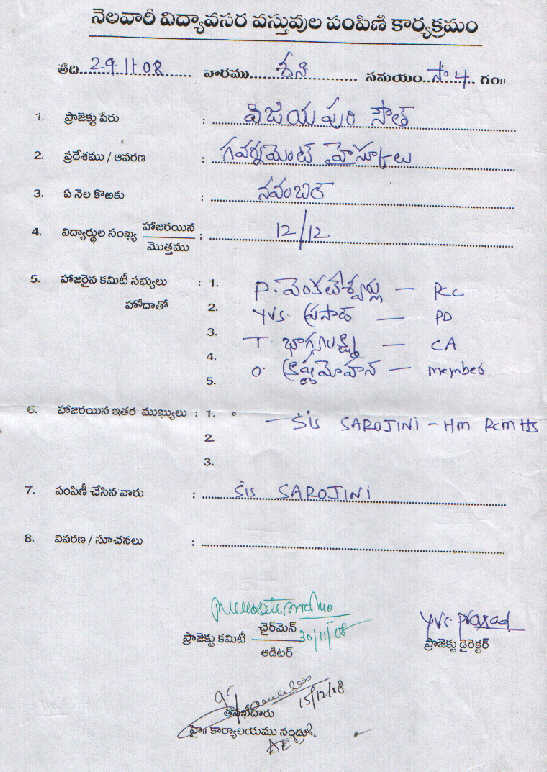 నెలవారీ విద్యావసర వస్తువుల పంపిణి కార్యక్రమం
తేది 29.11.08 వారము శని సమయం సా 4 గం॥
1. ప్రాజెక్టు పేరు : విజయపురి సౌత్
2. ప్రదేశము / ఆవరణ : గవర్నమెంట్ హైస్కూలు
3. ఏ నెల కొఱకు : నవంబర్
4. విద్యార్థుల సంఖ్య హాజరయిన / మొత్తము : 12/12
5. హాజరైన కమిటీ సభ్యులు హోదాతో : 1. P. వెంకటేశ్వర్లు - PCC
2. YVS. ప్రసాద్ - PD
3. T. భాగ్యలక్ష్మి - CA
4. O. కృష్ణమోహన్ - member
5.
6. హాజరయిన ఇతర ముఖ్యులు : 1. - SIS SAROJINI - HM RCM HS
2.
3.
7. పంపిణీ చేసిన వారు : SIS SAROJINI
8. వివరణ / సూచనలు :
ప్రాజెక్టు కమిటీ ఛైర్మెన్ 30/11/08
ఆడిటర్
YVS. Prasad
ప్రాజెక్టు డైరెక్టర్
15/12/08
కార్యాలయము